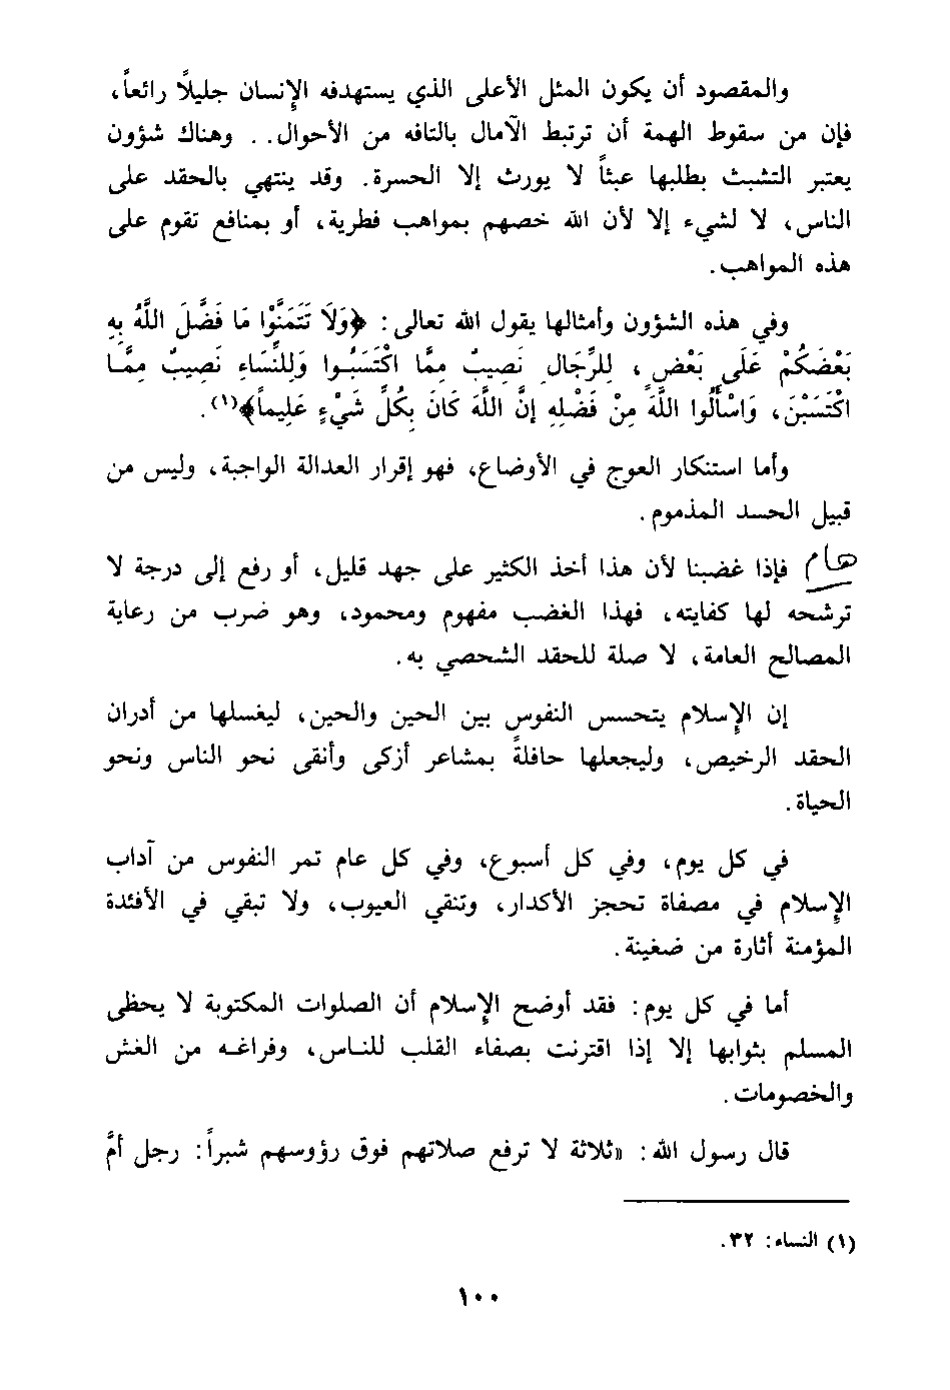 والمقصود أن يكون المثل الأعلى الذي يستهدفه الإنسان جليلًا رائعاً،
فإن من سقوط الهمة أن ترتبط الآمال بالتافه من الأحوال.. وهناك شؤون
يعتبر التشبث بطلبها عبثاً لا يورث إلا الحسرة. وقد ينتهي بالحقد على
الناس، لا لشيء إلا لأن الله خصهم بمواهب فطرية، أو بمنافع تقوم على
هذه المواهب.
وفي هذه الشؤون وأمثالها يقول الله تعالى: ﴿وَلَا تَتَمَنَّوْا مَا فَضَّلَ اللَّهُ بِهِ
بَعْضَكُمْ عَلَى بَعْضٍ، لِلرِّجَالِ نَصِيبٌ مِمَّا اكْتَسَبُوا وَلِلنِّسَاءِ نَصِيبٌ مِمَّا
اكْتَسَبْنَ، وَاسْأَلُوا اللَّهَ مِنْ فَضْلِهِ إِنَّ اللَّهَ كَانَ بِكُلِّ شَيْءٍ عَلِيماً﴾(١).
وأما استنكار العوج في الأوضاع، فهو إقرار العدالة الواجبة، وليس من
قبيل الحسد المذموم.
هام فإذا غضبنا لأن هذا أخذ الكثير على جهد قليل، أو رفع إلى درجة لا
ترشحه لها كفايته، فهذا الغضب مفهوم ومحمود، وهو ضرب من رعاية
المصالح العامة، لا صلة للحقد الشخصي به.
إن الإسلام يتحسس النفوس بين الحين والحين، ليغسلها من أدران
الحقد الرخيص، وليجعلها حافلةً بمشاعر أزكى وأنقى نحو الناس ونحو
الحياة.
في كل يوم، وفي كل أسبوع، وفي كل عام تمر النفوس من آداب
الإسلام في مصفاة تحجز الأكدار، وتنقي العيوب، ولا تبقي في الأفئدة
المؤمنة أثارة من ضغينة.
أما في كل يوم: فقد أوضح الإسلام أن الصلوات المكتوبة لا يحظى
المسلم بثوابها إلا إذا اقترنت بصفاء القلب للناس، وفراغه من الغش
والخصومات.
قال رسول الله: «ثلاثة لا ترفع صلاتهم فوق رؤوسهم شبراً: رجل أمَّ
(١) النساء: ٣٢.
١٠٠